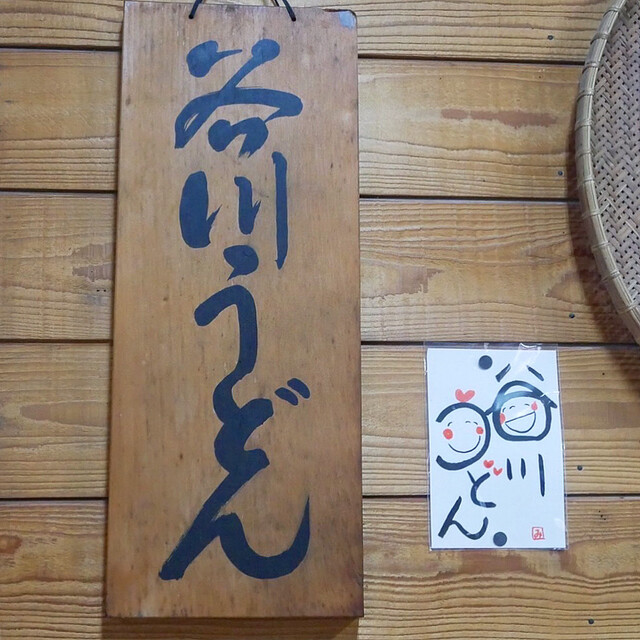 谷川うどん
谷川
うどん
み